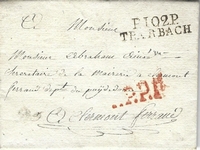 A
Monsieur
P.102.P.
TRARBACH
Monsieur Abraham
Secretaire de la Mairie a Clermont
ferrand dept du puy de dome
P.P.P.
a Clermont ferrand